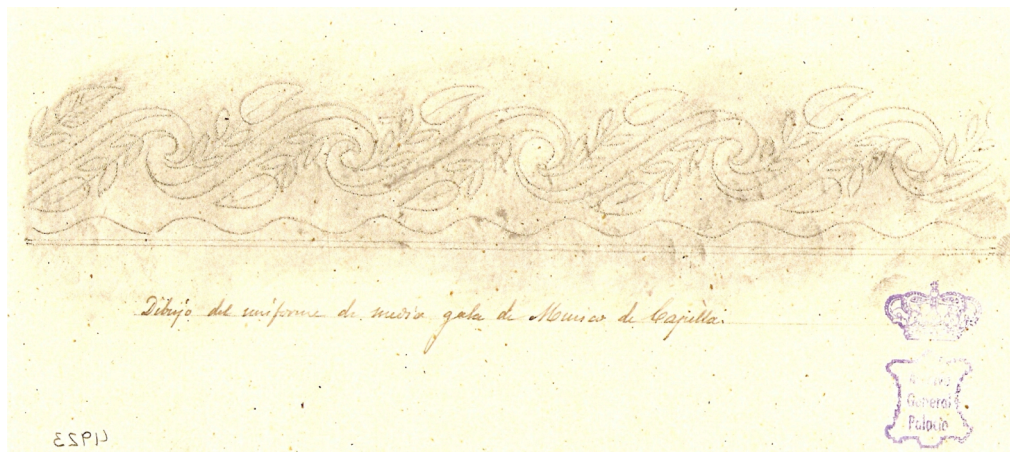 Dibujo del uniforme de media gala de Musico de Capilla.
Archivo
General
Palacio
4923